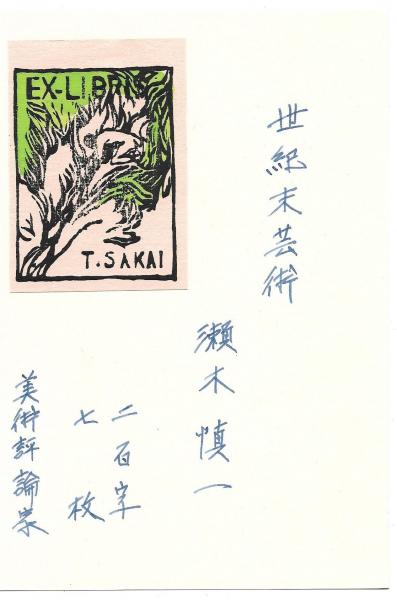 EX-LIBRIS
T. SAKAI
世紀末芸術
瀬木慎一
二百字
七枚
美術評論家